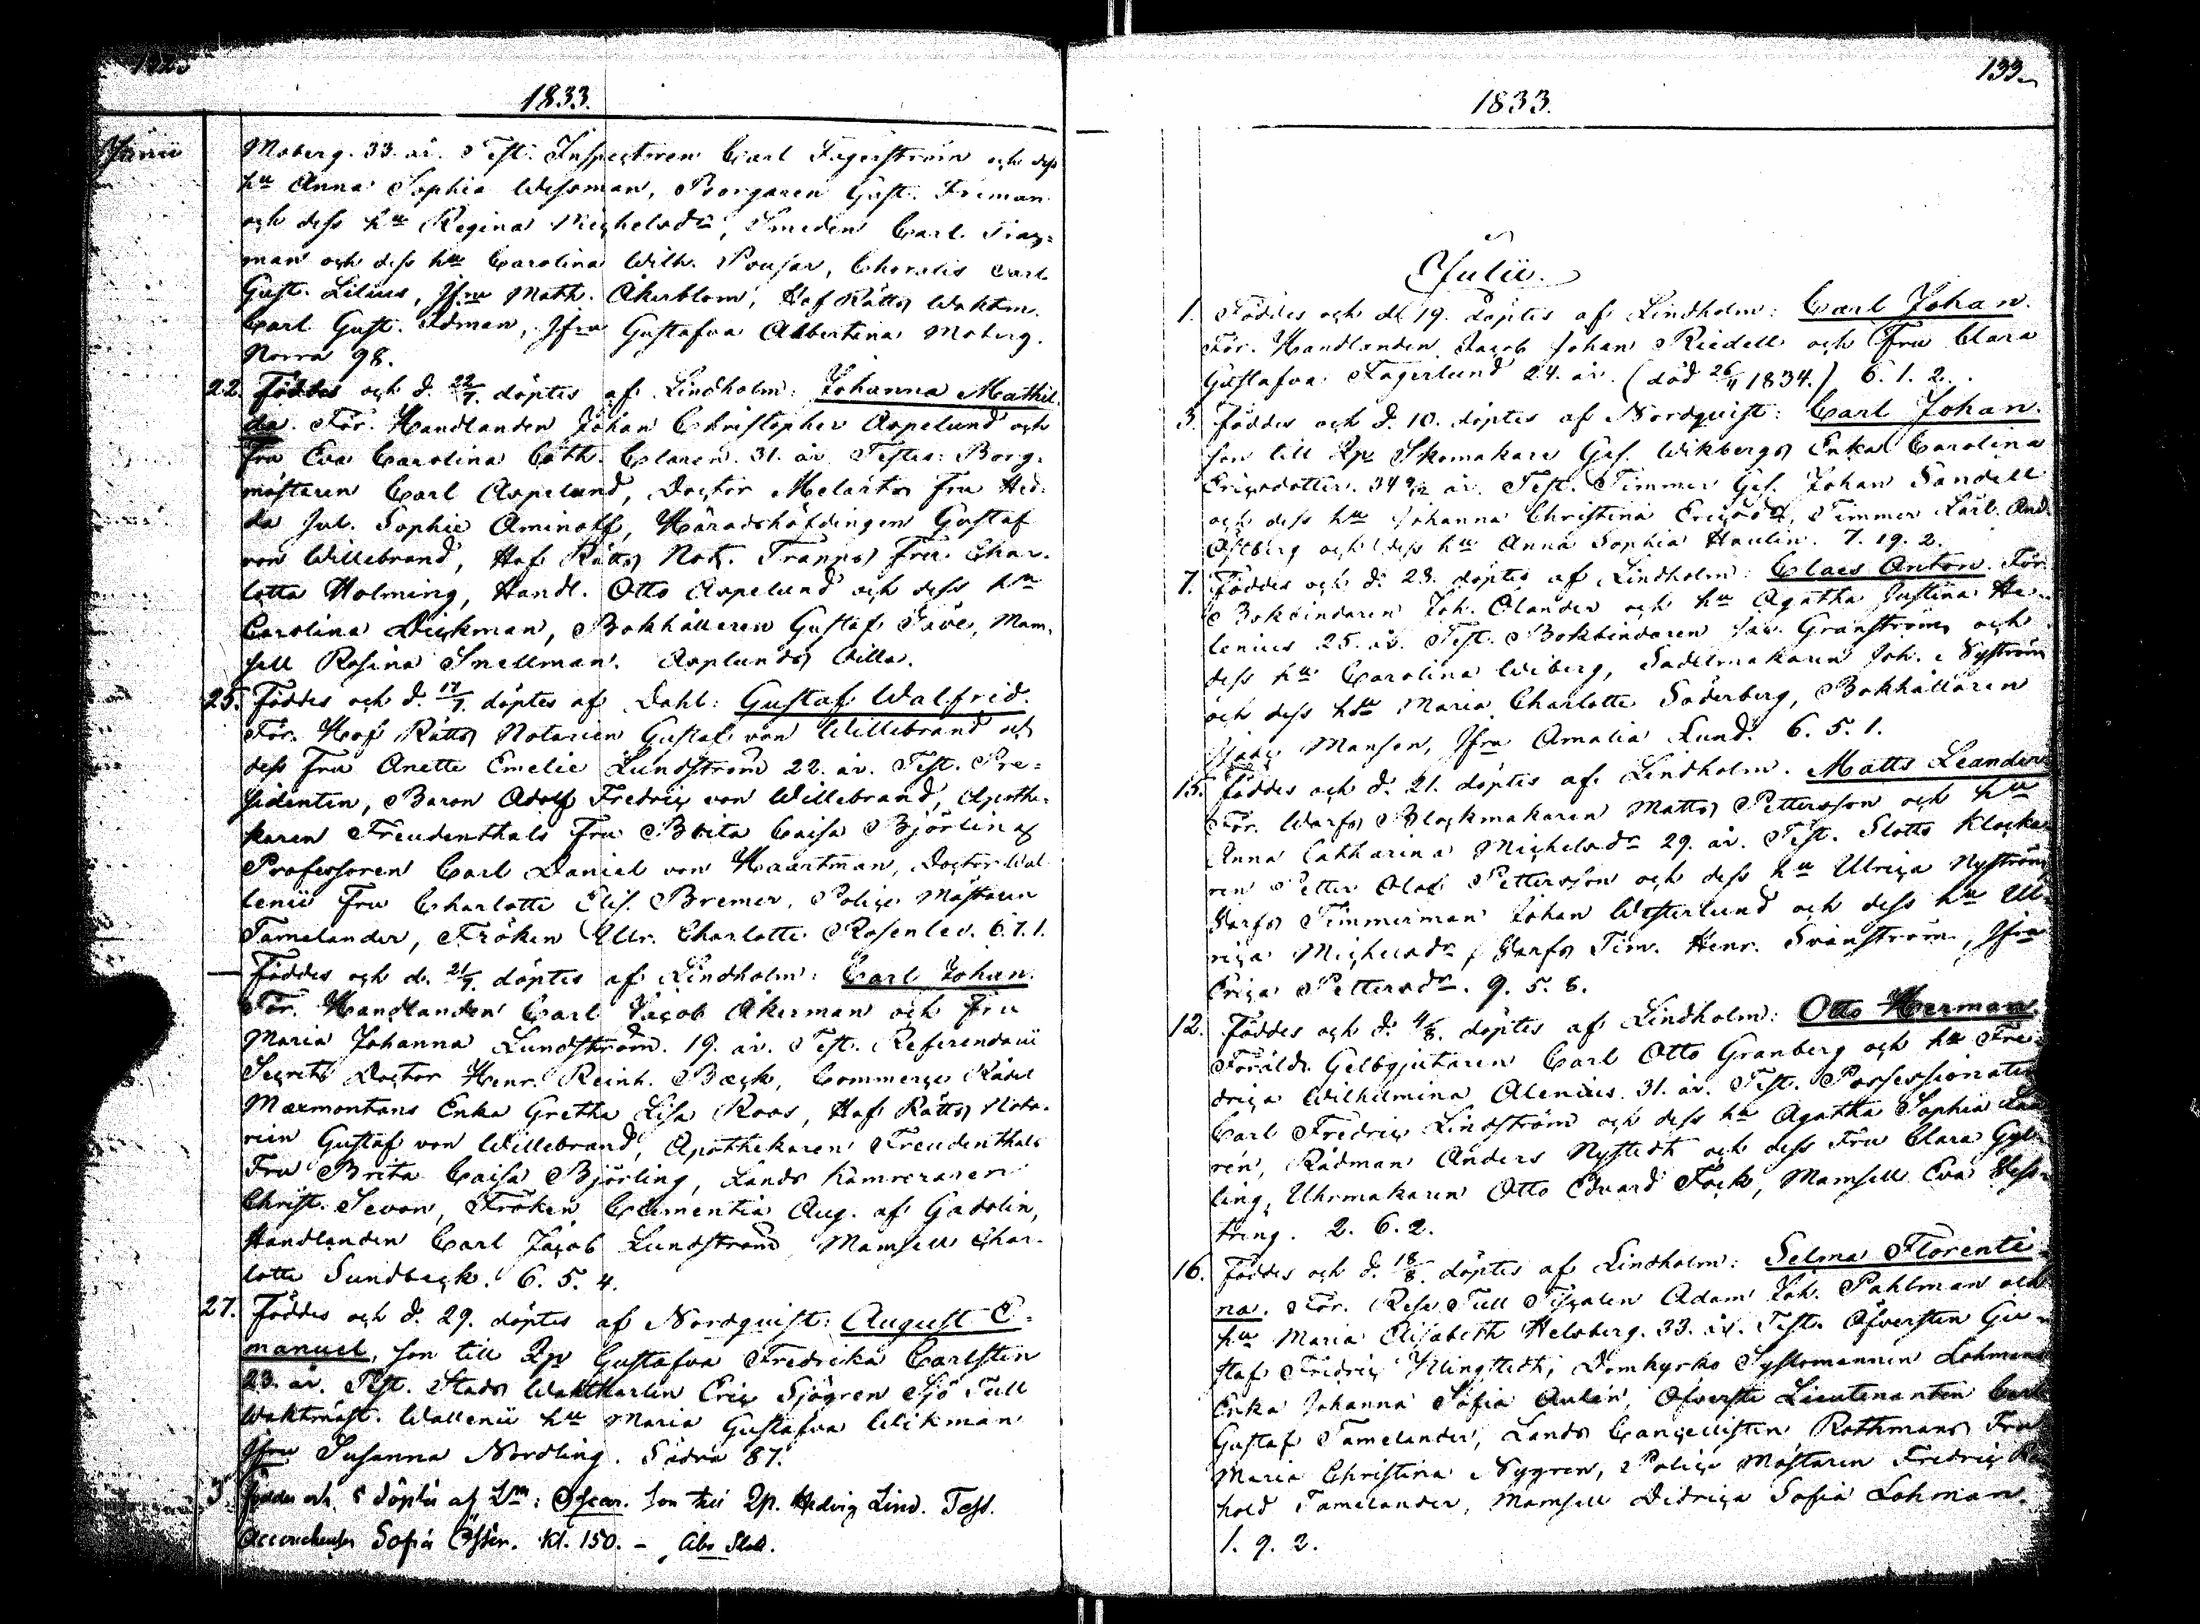 1833.
Junii
Moberg. 33. år. Test. Inspectoren Carl Fagerström och dess
hu Anna Sophia Wessman, Borgaren Gust. Friman
och dess hu Regina Michelsdr, Smeden Carl
man och dess hu Carolina Wilh. Pousar, Choralis Carl
Gust. Lilius, Jfru Math. Åkerblom, Hof Rätts Waktm.
Carl Gust. Idman, Jfru Gustafva Albertina Moberg.
Norra 98.
22. Föddes och d. 22/7. döptes af Lindholm: Johanna Mathil
da. För. Handlanden Johan Christopher Aspelund och
Fru Eva Carolina Cath. Claren. 31. år. Testes: Borg-
mästaren Carl Aspelund, Doctor Melartos Fru Hed-
da Jul. Sophie Aminoff, Häradshöfdingen Gustaf
von Willebrand, Hof Rätts Not. Trapps Fru Char-
lotta Holming, Handl. Otto Aspelund och dess hu
Carolina Dickman, Bokhållaren Gustaf Tåve, Mam-
sell Rosina Snellman. Asplunds Villa.
25. Föddes och d. 17/7. döptes af Dahl: Gustaf Walfrid.
För. Hof Rätts Notarien Gustaf von Willebrand och
dess Fru Anette Emelie Lundström 22. år. Test. Pre-
sidenten, Baron Adolf Fredric von Willebrand, Apothe-
karen Freudenthals Fru Brita Caisa Björling
Professoren Carl Daniel von Haartman, Doctor Wal
lenii Fru Charlotte Elis. Bremer, Police Mästaren
Tamelander, Fröken Ulr. Charlotte Rosenlev. 6.7.1.
— Föddes och d. 21/7. döptes af Lindholm: Carl Johan.
För. Handlanden Carl Jacob Åkerman och Fru
Maria Johanna Lundström. 19. år. Test. Referendarii
Secret. Doctor Henr. Reinh. Bæck, Commerce Rådet
Marmontans Enka Gretha Lisa Roos, Hof Rätts Nota-
rien Gustaf von Willebrand, Apothekaren Freudenthals
Fru Brita Caisa Björling, Lands Kamreraren
Christ. Sevon, Fröken Clementia Aug. af Gadolin,
Handlanden Carl Jacob Lundström, Mamsell Char-
lotte Sundbeck. 6. 5. 4.
27. Föddes och d. 29. döptes af Nordquist: August E-
manuel, son till Qp Gustafva Fredrika Carlsten
23. år. Test. Stads Waktkarlen Eric Sjögren Sjö Tull
Waktmäst. Wallenii hu Maria Gustafva Wikman
Jfru Susanna Nordling. Södra 87.
3. Föddes och 8 döptes af Lm: Oscar. Son till Qp. Hedvig Lind. Test.
Accoucheusen Sofia Össer. kl. 150. — Åbo Slott.
133.
1833.
Julii.
1. Föddes och d. 19. döptes af Lindholm: Carl Johan.
För. Handlanden Jacob Johan Riedell och Fru Clara
Gustafva Fagerlund 24. år. (död 26/4 1834.) 6. 1. 2.
3. Föddes och d. 10. döptes af Nordquist: Carl Johan.
son till Qp Skomakare Ges. Wikbergs Enka Carolina
Ericsdotter. 34 9/12 år. Test. Timmer Ges. Johan Sandell
och dess hu Johanna Christina Ericsdr, Timmer Karl. And.
Östberg och dess hu Anna Sophia Haulin. 7. 19. 2.
7. Föddes och d. 28. döptes af Lindholm: Claes Anton. För.
Bokbindaren Joh. Ölander och hu Agatha Justina He-
lenius 25. år. Test. Bokbindaren Jac. Granström och
dess hu Carolina Wiberg, Sadelmakaren Joh. Nyström
och dess hu Maria Charlotte Söderberg, Bokhållaren
Manson, Jfru Amalia Lund. 6. 5. 1.
15. Föddes och d. 21. döptes af Lindholm. Matts Leander
För. Warfs Blockmakaren Matts Pettersson och hu
Anna Catharina Michelsdr 29. år. Test. Slotts Klocka
ren Petter Olof Pettersson och dess hu Ulrica Nyström
Warfs Timmerman Johan Westerlund och dess hu Ul-
rica Michelsdr, Warfs Tim. Henr. Svanström, Jfru
Erica Pettersdr. 9. 5. 8.
12. Föddes och d. 4/8. döptes af Lindholm: Otto Herman.
Föräldr. Gelbgjutaren Carl Otto Granberg och hu Fre-
drica Wilhelmina Alenius. 31. år. Test. Possessionaten
Carl Fredric Lindström och dess hu Agatha Sophia
ren, Rådman Anders Nystedt och dess Fru Clara Gyl-
ling, Uhrmakaren Otto Edvard Fock, Mamsell Eva
tring. 2. 6. 2.
16. Föddes och d. 18/8. döptes af Lindholm: Selma Florenti-
na. För. Resp. Tull Fiscalen Adam Joh. Pahlman och
hu Maria Elisabeth Helsberg. 33. år. Test. Öfversten Gu-
staf Fredric Klingstedt, Domkyrko Sysslomannen Lohmans
Enka Johanna Sofia Aulin, Öfverste Lieutenanten Carl
Gustaf Tamelander, Lands Cancellisten Rothmans Fru
Maria Christina Nygren, Police Mästaren Fredric Re
hold Tamelander, Mamsell Didrica Sofia Lohman.
1. 9. 2.